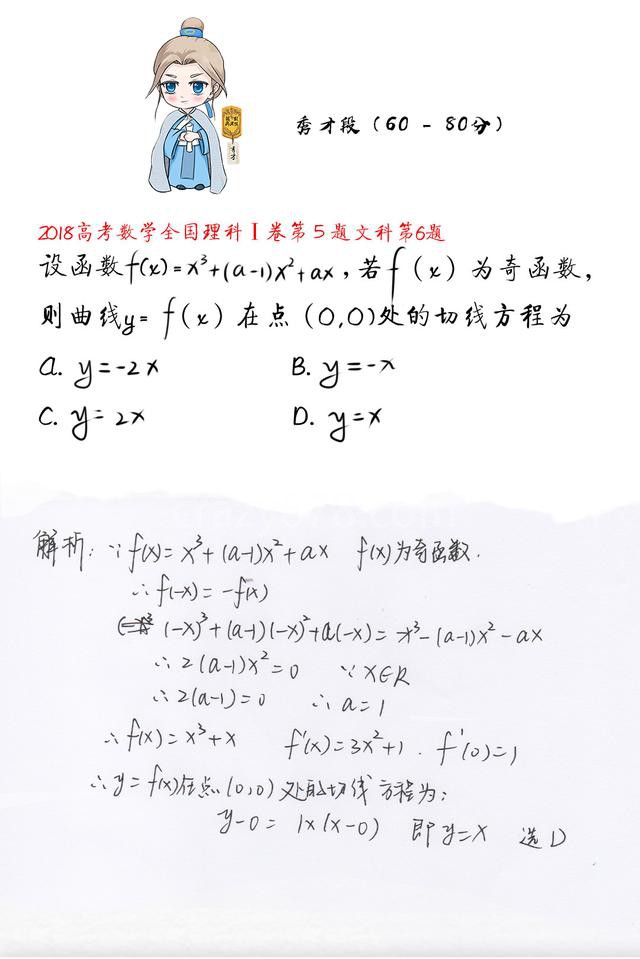 秀才
秀才段（60 - 80分）
2018高考数学全国理科Ⅰ卷第5题文科第6题
设函数f(x)=x³+(a-1)x²+ax，若f（x）为奇函数，
则曲线y= f(x) 在点 (0,0)处的切线方程为
A. y=-2x
B. y=-x
C. y= 2x
D. y=x
解析：∵f(x)=x³+(a-1)x²+ax f(x)为奇函数.
∴f(-x)=-f(x)
(-x)³+(a-1)(-x)²+a(-x)=-x³-(a-1)x²-ax
∴2(a-1)x²=0 ∵x∈R
∴2(a-1)=0 ∴a=1
∴f(x)=x³+x f'(x)=3x²+1. f'(0)=1
∴y=f(x)在点(0,0)处的切线方程为:
y-0=1×(x-0) 即y=x 选D